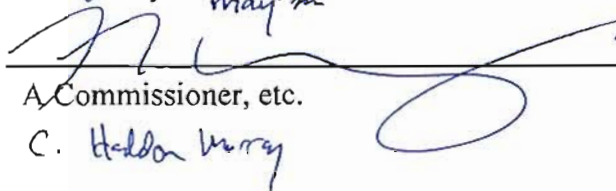 A Commissioner, etc.
C. Haddon Murray